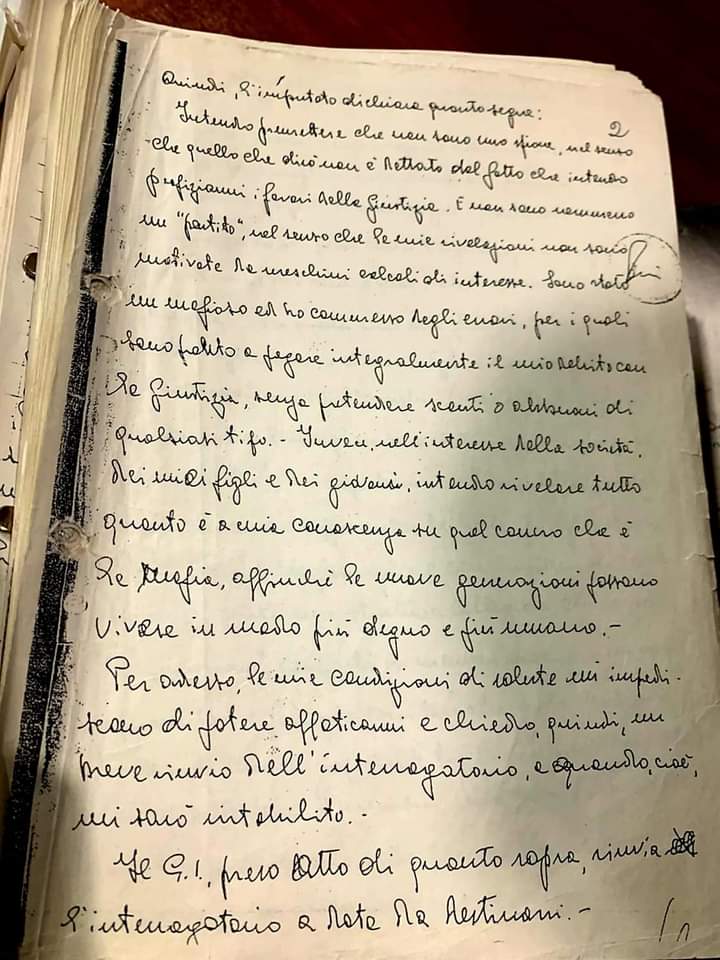 Quindi, l'imputato dichiara quanto segue:
2
Intendo premettere che non sono uno spione, nel senso
che quello che dirò non è dettato dal fatto che intendo
propiziarmi i favori della Giustizia. E non sono nemmeno
un "pentito", nel senso che le mie rivelazioni non sono
motivate da meschini calcoli di interesse. Sono stato
un mafioso ed ho commesso degli errori, per i quali
sono pronto a pagare integralmente il mio debito con
la Giustizia, senza pretendere sconti o abbuoni di
qualsiasi tipo.- Invece, nell'interesse della società,
dei miei figli e dei giovani, intendo rivelare tutto
quanto è a mia conoscenza su quel cancro che è
la Mafia, affinchè le nuove generazioni possano
vivere in modo più degno e più umano.-
Per adesso, le mie condizioni di salute mi impedi-
scono di potere affaticarmi e chiedo, quindi, un
breve rinvio dell'interrogatorio, a quando, cioè,
mi sarò ristabilito.-
Il G.I., preso atto di quanto sopra, rinvia
l'interrogatorio a data da destinarsi.-